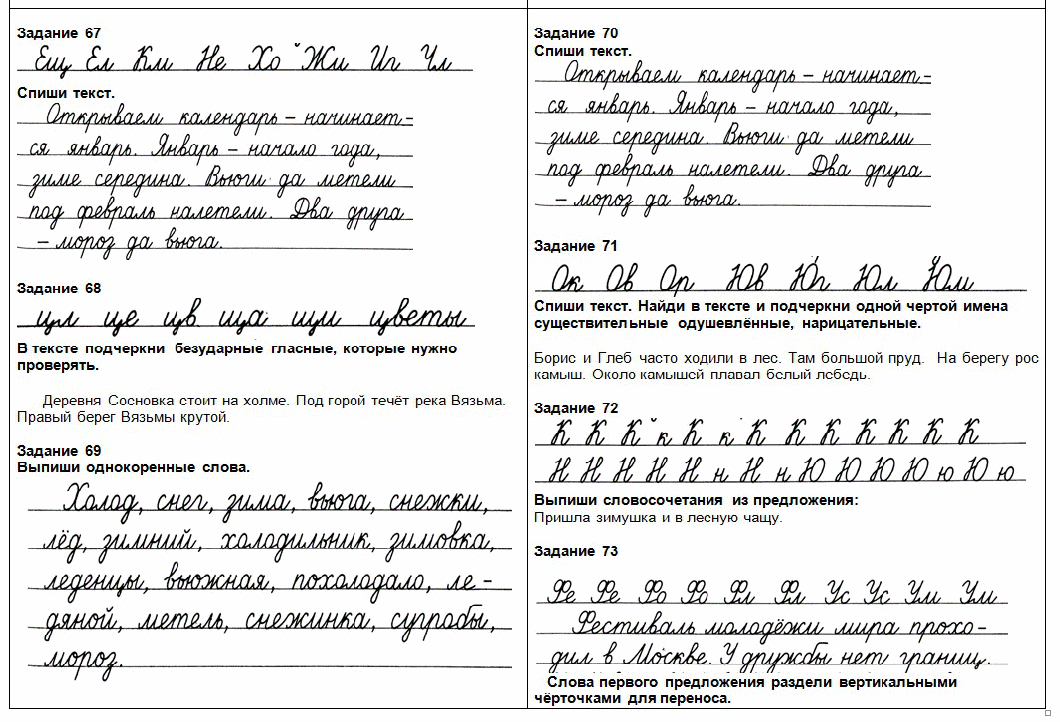 Задание 67
Ещ Ел Км Не Хо Жи Иг Чл
Спиши текст.
Открываем календарь – начинает-
ся январь. Январь – начало года,
зиме середина. Вьюги да метели
под февраль налетели. Два друга
– мороз да вьюга.
Задание 68
цл це цв ща щи цветы
В тексте подчеркни безударные гласные, которые нужно
проверять.
Деревня Сосновка стоит на холме. Под горой течёт река Вязьма.
Правый берег Вязьмы крутой.
Задание 69
Выпиши однокоренные слова.
Холод, снег, зима, вьюга, снежки,
лёд, зимний, холодильник, зимовка,
леденцы, вьюжная, похолодало, ле-
дяной, метель, снежинка, сугробы,
мороз.
Задание 70
Спиши текст.
Открываем календарь – начинает-
ся январь. Январь – начало года,
зиме середина. Вьюги да метели
под февраль налетели. Два друга
– мороз да вьюга.
Задание 71
Ок Ов Ор Юв Юг Юл Юм
Спиши текст. Найди в тексте и подчеркни одной чертой имена
существительные одушевлённые, нарицательные.
Борис и Глеб часто ходили в лес. Там большой пруд. На берегу рос
камыш. Около камышей плавал белый лебедь.
Задание 72
К К К к К к К К К К К К К
Н Н Н Н Н н Н н Ю Ю Ю Ю ю Ю ю
Выпиши словосочетания из предложения:
Пришла зимушка и в лесную чащу.
Задание 73
Фе Фе Фо Фо Фл Фл Ус Ус Ум Ум
Фестиваль молодёжи мира прохо-
дил в Москве. У дружбы нет границ.
Слова первого предложения раздели вертикальными
чёрточками для переноса.